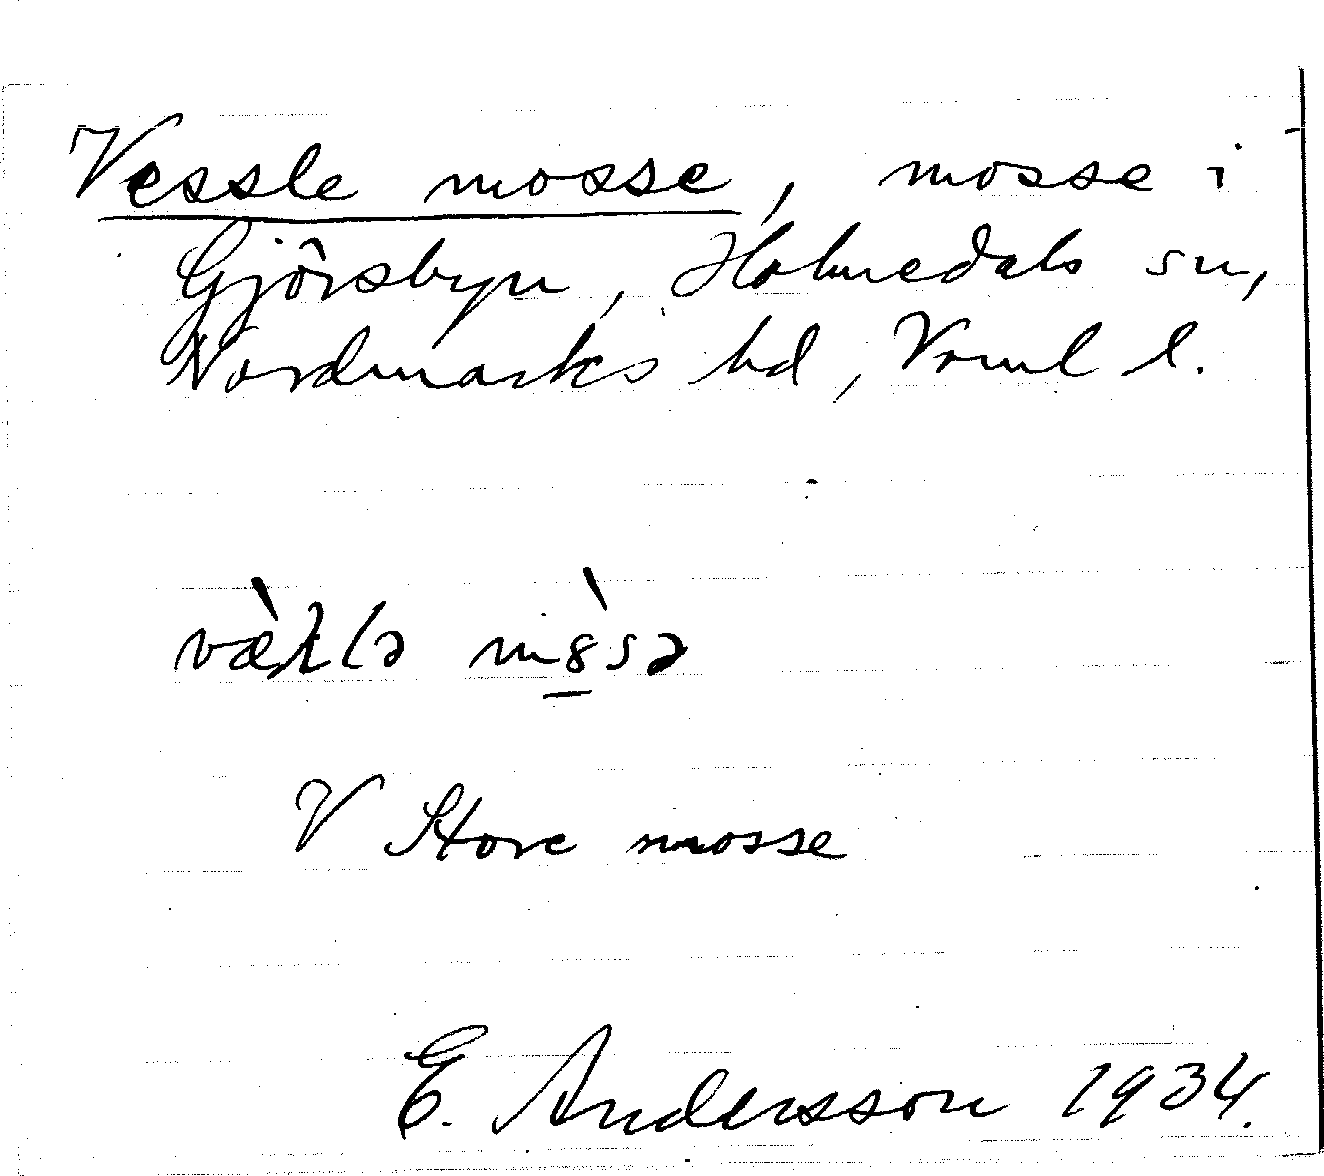 Vessle mosse, mosse i
Gjörsbyn, Holmedals sn,
Nordmarks hd, Vrml l.
mòsə
V Store mosse
E. Andersson 1934.